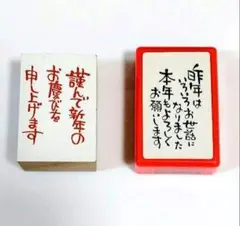 謹んで新年の
お慶びを
申し上げます
昨年は
いろいろお世話に
なりました
本年もよろしく
お願いします